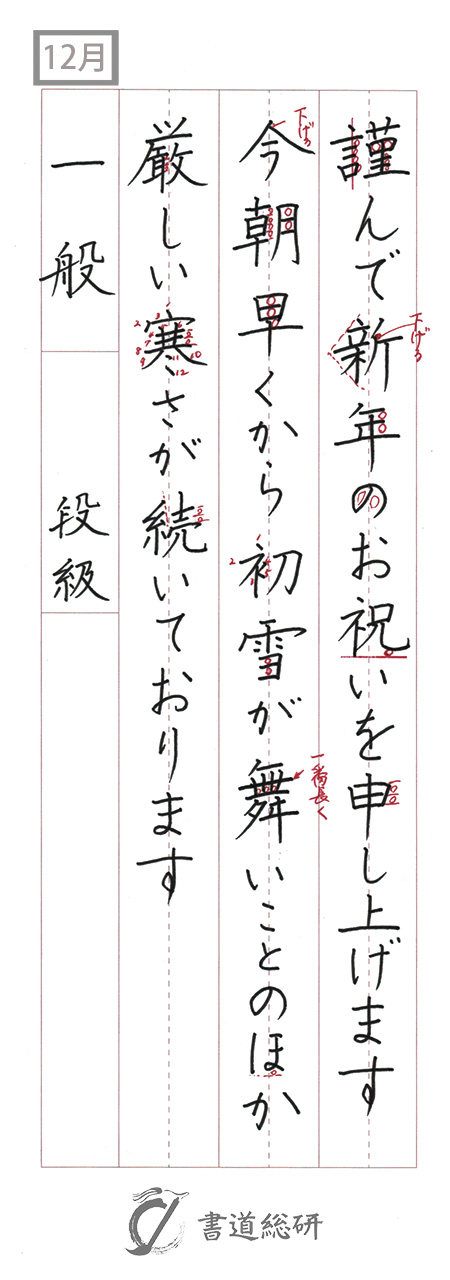 12月
謹んで新年のお祝いを申し上げます
下げる
今朝早くから初雪が舞いことのほか
下げる
一番長く
厳しい寒さが続いております
一般
段級
書道総研